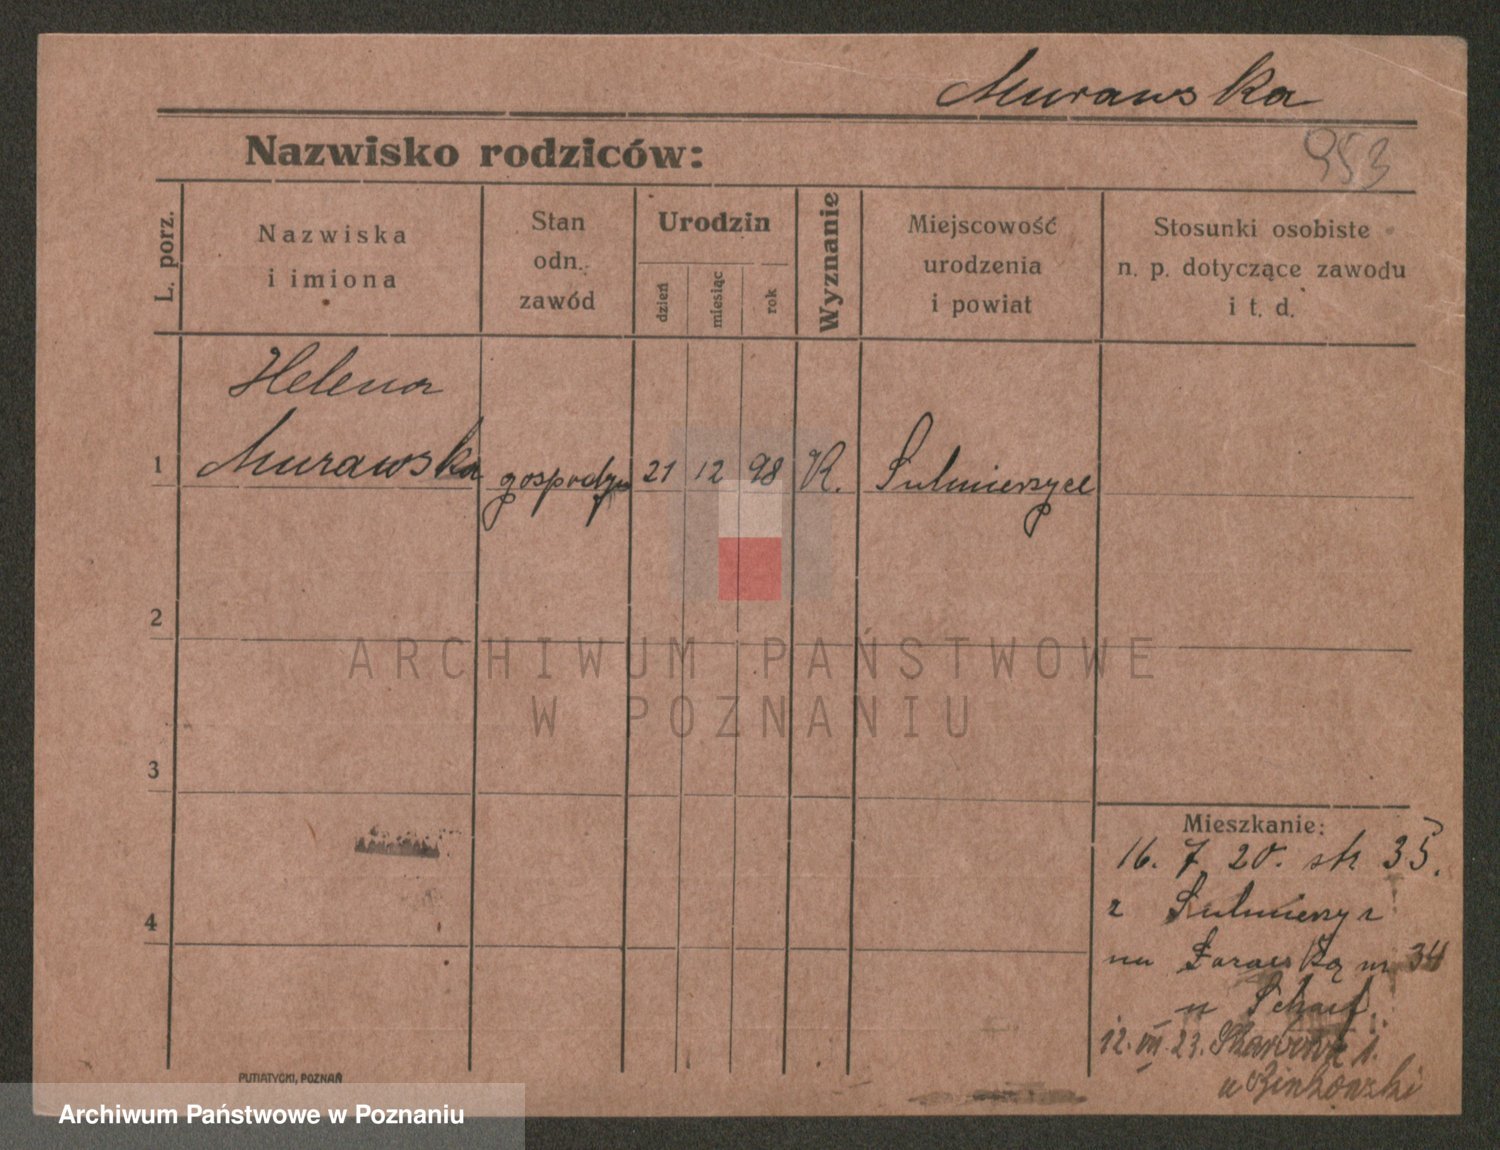 Murawska
Nazwisko rodziców:
953
L. porz.
Nazwiska
i imiona
Stan
odn.
zawód
Urodzin
dzień
miesiąc
rok
Wyznanie
Miejscowość
urodzenia
i powiat
Stosunki osobiste
n. p. dotyczące zawodu
i t. d.
Helena
1 Murawska gospodyn 21 12 98 K. Sulmierzyce
2
ARCHIWUM PAŃSTWOWE
W POZNANIU
3
Mieszkanie:
16. 7 20. str 35.
4
z Sulmierzyc
na nr 34
u
12. VII. 23.
u
PUTIATYCKI, POZNAŃ
Archiwum Państwowe w Poznaniu